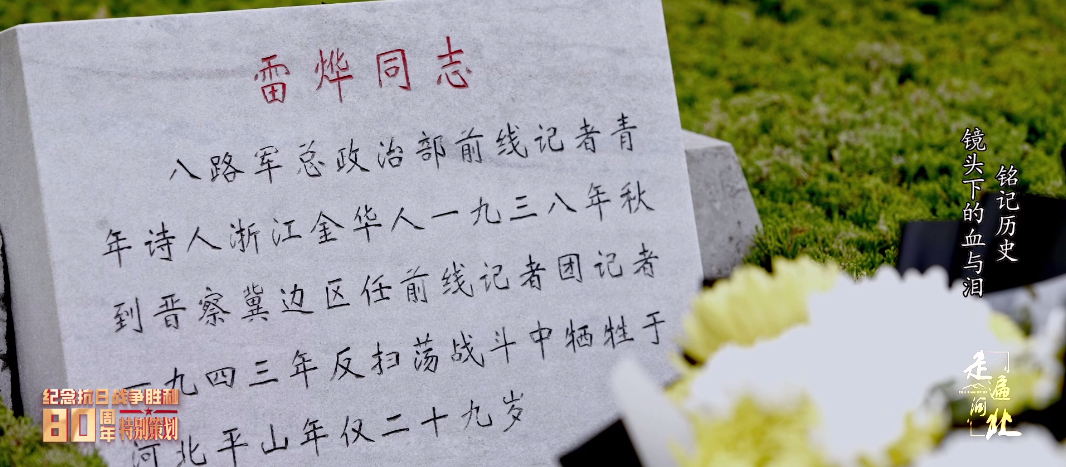 雷烨同志
八路军总政治部前线记者青
年诗人浙江金华人一九三八年秋
到晋察冀边区任前线记者团记者
一九四三年反扫荡战斗中牺牲于
河北平山年仅二十九岁
铭记历史
镜头下的血与泪
纪念抗日战争胜利
80周年特别策划
走遍河北